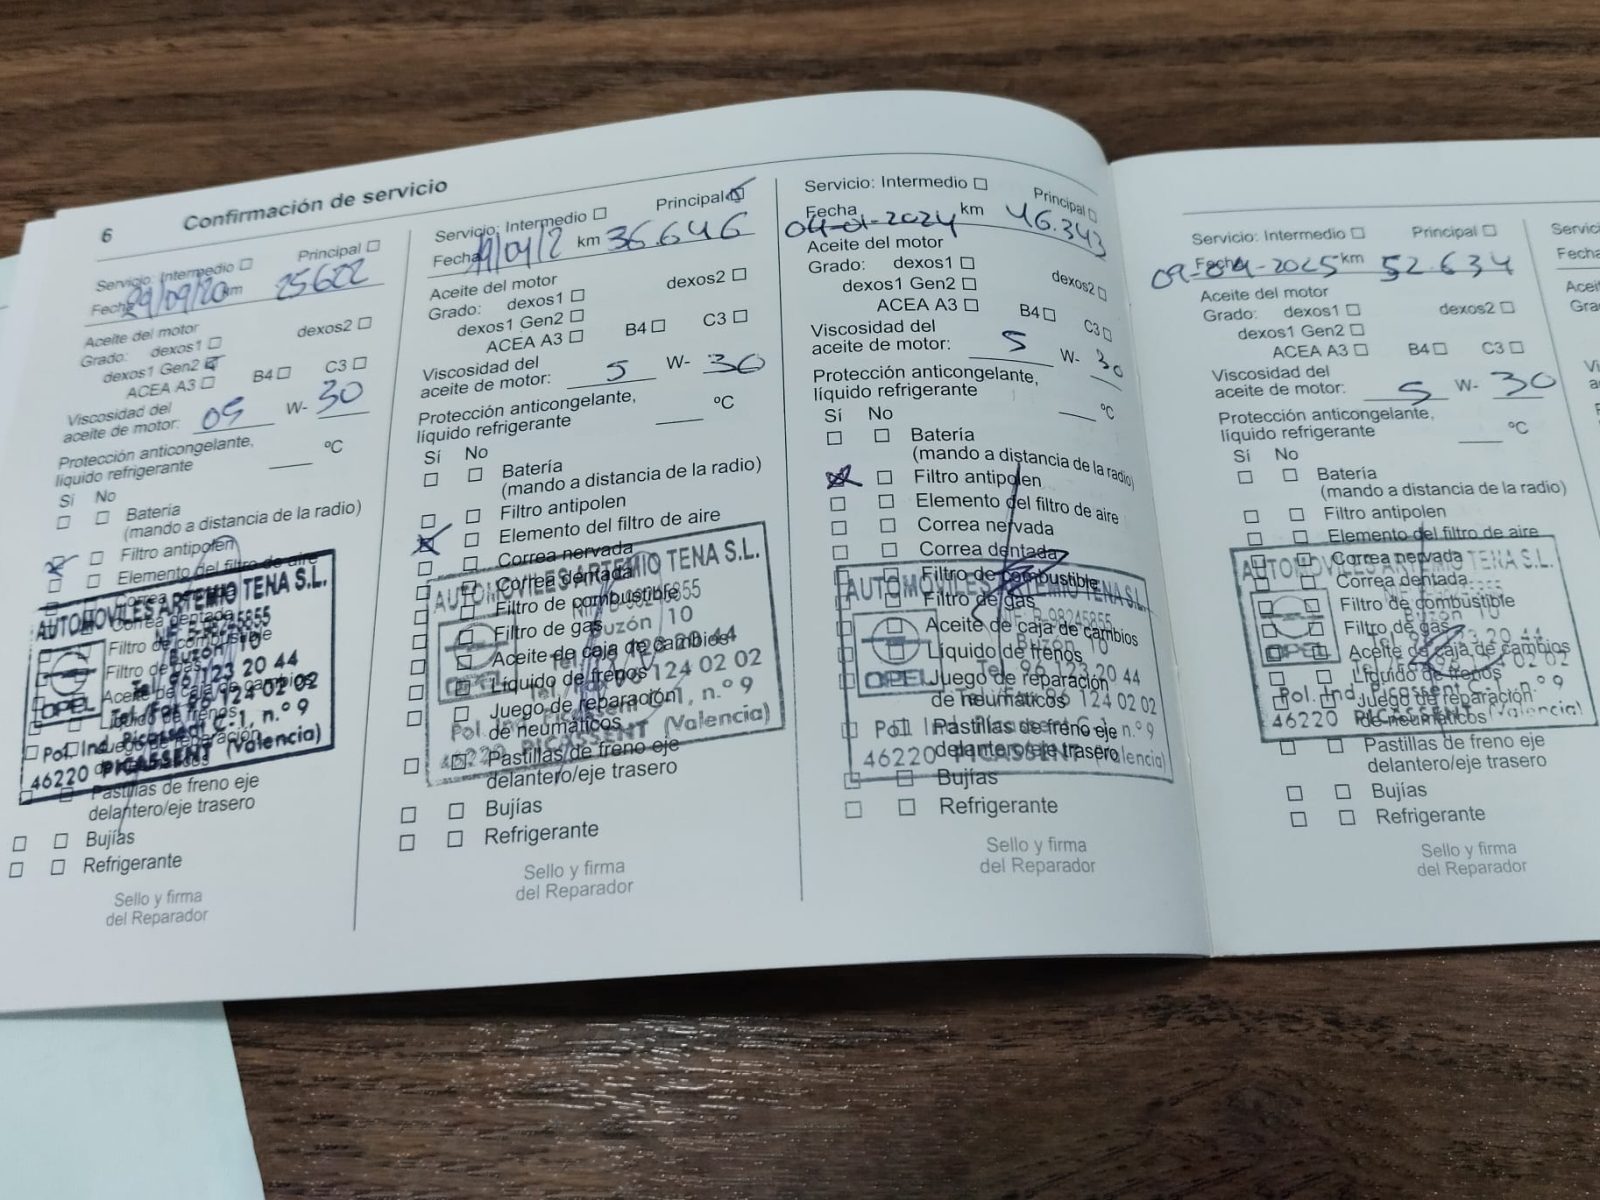 6 Confirmación de servicio
Servicio: Intermedio Principal
Fecha 29/09/20 km 25622
Aceite del motor
Grado: dexos1 dexos2
dexos1 Gen2
ACEA A3 B4 C3
Viscosidad del
aceite de motor: 05 W- 30
Protección anticongelante,
líquido refrigerante ºC
Sí No
Batería
(mando a distancia de la radio)
Filtro antipolen
Elemento del filtro de aire
Correa dentada
Filtro de combustible
Filtro de gas
Aceite de caja de cambios
Líquido de frenos
Juego de reparación
Pastillas de freno eje
delantero/eje trasero
Bujías
Refrigerante
AUTOMOVILES ARTEMIO TENA S.L.
Buzón 10
OPEL
Tel. 96 123 20 44
Tel./Fax 96 124 02 02
Pol. Ind. Picassent C-1, n.º 9
46220 PICASSENT (Valencia)
Sello y firma
del Reparador
Servicio: Intermedio Principal
Fecha km 36.646
Aceite del motor
Grado: dexos1 dexos2
dexos1 Gen2
ACEA A3 B4 C3
Viscosidad del
aceite de motor: 5 W- 30
Protección anticongelante,
líquido refrigerante ºC
Sí No
Batería
(mando a distancia de la radio)
Filtro antipolen
Elemento del filtro de aire
Correa nervada
Correa dentada
Filtro de combustible
Filtro de gas
Aceite de caja de cambios
Líquido de frenos
Juego de reparación
de neumáticos
Pastillas de freno eje
delantero/eje trasero
Bujías
Refrigerante
AUTOMOVILES ARTEMIO TENA S.L.
Buzón 10
OPEL
Tel. 96 123 20 44
Tel./Fax 96 124 02 02
Pol. Ind. Picassent C-1, n.º 9
46220 PICASSENT (Valencia)
Sello y firma
del Reparador
Servicio: Intermedio Principal
Fecha 04-01-2024 km 46.343
Aceite del motor
Grado: dexos1 dexos2
dexos1 Gen2
ACEA A3 B4 C3
Viscosidad del
aceite de motor: 5 W- 30
Protección anticongelante,
líquido refrigerante ºC
Sí No
Batería
(mando a distancia de la radio)
Filtro antipolen
Elemento del filtro de aire
Correa nervada
Correa dentada
Filtro de combustible
Filtro de gas
Aceite de caja de cambios
Líquido de frenos
Juego de reparación
de neumáticos
Pastillas de freno eje
delantero/eje trasero
Bujías
Refrigerante
AUTOMOVILES ARTEMIO TENA S.L.
Buzón 10
OPEL
Tel. 96 123 20 44
Tel./Fax 96 124 02 02
Pol. Ind. Picassent C-1, n.º 9
46220 PICASSENT (Valencia)
Sello y firma
del Reparador
Servicio: Intermedio Principal
Fecha 09-04-2025 km 52.634
Aceite del motor
Grado: dexos1 dexos2
dexos1 Gen2
ACEA A3 B4 C3
Viscosidad del
aceite de motor: 5 W- 30
Protección anticongelante,
líquido refrigerante ºC
Sí No
Batería
(mando a distancia de la radio)
Filtro antipolen
Elemento del filtro de aire
Correa nervada
Correa dentada
Filtro de combustible
Filtro de gas
Aceite de caja de cambios
Líquido de frenos
Juego de reparación
de neumáticos
Pastillas de freno eje
delantero/eje trasero
Bujías
Refrigerante
AUTOMOVILES ARTEMIO TENA S.L.
OPEL
Pol. Ind. Picassent C-1, n.º 9
46220 PICASSENT (Valencia)
Sello y firma
del Reparador
Fecha